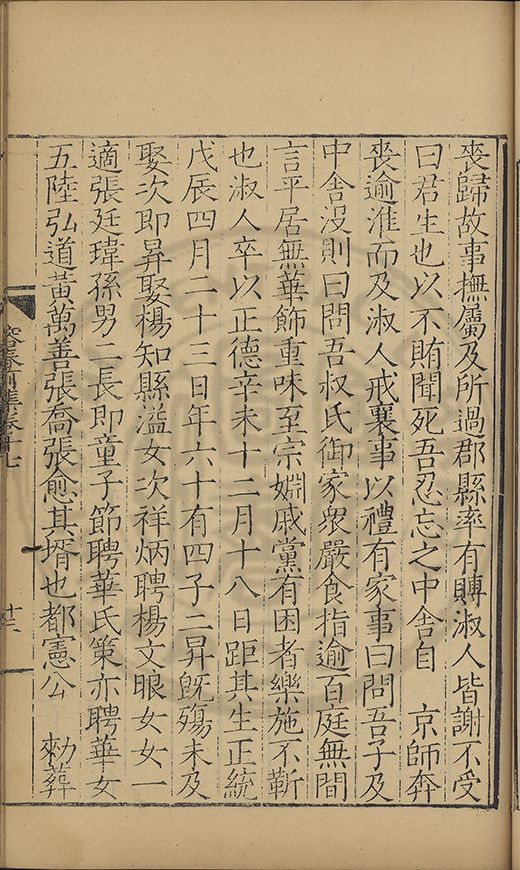 喪歸故事撫屬及所過郡縣率有賻淑人皆謝不受
曰君生也以不賄聞死吾忍忘之中舍自　京師奔
喪逾淮而及淑人戒襄事以禮有家事曰問吾子及
中舍沒則曰問吾叔氏御家衆嚴食指逾百庭無間
言平居無華飾重味至宗婣戚黨有困者樂施不靳
也淑人卒以正德辛未十二月十八日距其生正統
戊辰四月二十三日年六十有四子二昇旣殤未及
娶次即昇娶楊知縣溢女次祥炳聘楊文眼女女一
適張廷瑋孫男二長即童子節聘華氏策亦聘華女
五陸弘道黃萬善張喬張愈其壻也都憲公　勑葬
容春 集卷十七